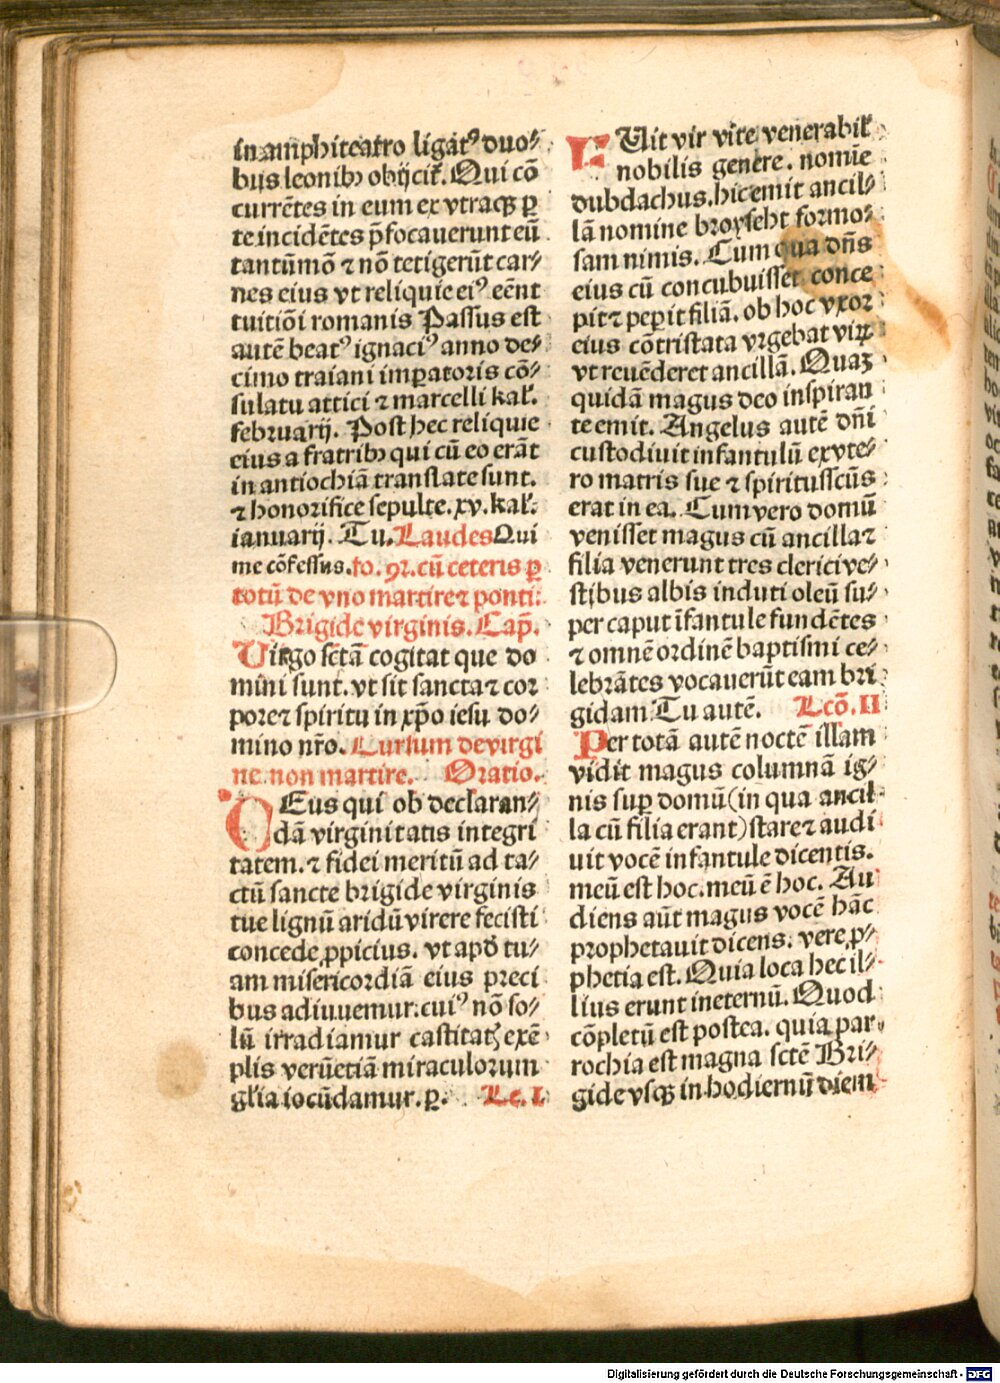 in amphiteatro ligatꝰ duo⸗
bus leonibꝫ obijcit̃. Qui cõ
currẽtes in eum ex vtraqꝫ ꝑ
te incidẽtes p̃focauerunt eũ
tantũmõ ⁊ nõ tetigerũt car⸗
nes eius vt reliquie eiꝰ eẽnt
tuitiõi romanis Passus est
autẽ beatꝰ ignaciꝰ anno de⸗
cimo traiani imꝑatoris cõ⸗
sulatu attici ⁊ marcelli kal̃.
februarij. Post hec reliquie
eius a fratribꝫ qui cũ eo erãt
in antiochiã translate sunt.
⁊ honorifice sepulte. xv. kal̃.
ianuarij. Tu. Laudes Qui
me cõfessus. fo. 92. cũ ceteris ꝑ
totũ de vno martire ⁊ ponti:
Brigide virginis. Cap̃.
Virgo sctã cogitat que do
mini sunt. vt sit sancta ⁊ cor
pore ⁊ spiritu in xp̃o iesu do⸗
mino nr̃o. Cursum de virgi
ne non martire. Oratio.
DEus qui ob declaran⸗
dã virginitatis integri
tatem. ⁊ fidei meritũ ad ta⸗
ctũ sancte brigide virginis
tue lignũ aridũ virere fecisti
concede ꝓpicius. vt apd̃ tu⸗
am misericordiã eius preci
bus adiuuemur. cuiꝰ nõ so⸗
lũ irradiamur castitatꝭ exẽ
plis verũetiã miraculorum
gl̃ia iocũdamur. ꝑ. Lc. I
FUit vir vite venerabil̃
nobilis genere. nomĩe
dubdachus. hic emit ancil⸗
lã nomine broyseht formo⸗
sam nimis. Cum qua dñs
eius cũ concubuisset conce
pit ⁊ peꝑit filiã. ob hoc vxor
eius cõtristata vrgebat virꝝ
vt reuẽderet ancillã. Quaꝫ
quidã magus deo inspiran
te emit. Angelus autẽ dñi
custodiuit infantulũ ex vte⸗
ro matris sue ⁊ spiritusscũs
erat in ea. Cum vero domũ
venisset magus cũ ancilla ⁊
filia venerunt tres clerici ve⸗
stibus albis induti oleũ su⸗
per caput ĩfantule fundẽtes
⁊ omnẽ ordinẽ baptismi ce⸗
lebrãtes vocauerũt eam bri
gidam Tu autẽ. Lcõ. II
Per totã autẽ noctẽ illam
vidit magus columnã ig⸗
nis suꝑ domũ (in qua ancil
la cũ filia erant) stare ⁊ audi
uit vocẽ infantule dicentis.
meũ est hoc. meũ ẽ hoc. Au
diens aũt magus vocẽ hãc
prophetauit dicens. vere ꝓ⸗
phetia est. Quia loca hec il⸗
lius erunt ineternũ. Quod
cõpletũ est postea. quia par
rochia est magna sctẽ Bri⸗
gide vsqꝫ in hodiernũ diem
Digitalisierung gefördert durch die Deutsche Forschungsgemeinschaft - DFG